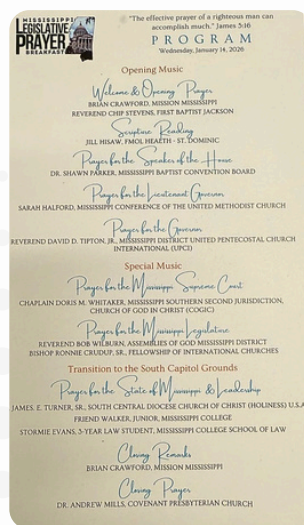 MISSISSIPPI
LEGISLATIVE
PRAYER
BREAKFAST
"The effective prayer of a righteous man can
accomplish much." James 5:16
PROGRAM
Wednesday, January 14, 2026
Opening Music
Welcome & Opening Prayer
BRIAN CRAWFORD, MISSION MISSISSIPPI
REVEREND CHIP STEVENS, FIRST BAPTIST JACKSON
Scripture Reading
JILL HISAW, FMOL HEALTH - ST. DOMINIC
Prayer for the Speaker of the House
DR. SHAWN PARKER, MISSISSIPPI BAPTIST CONVENTION BOARD
Prayer for the Lieutenant Governor
SARAH HALFORD, MISSISSIPPI CONFERENCE OF THE UNITED METHODIST CHURCH
Prayer for the Governor
REVEREND DAVID D. TIPTON, JR., MISSISSIPPI DISTRICT UNITED PENTECOSTAL CHURCH
INTERNATIONAL (UPCI)
Special Music
Prayer for the Mississippi Supreme Court
CHAPLAIN DORIS M. WHITAKER, MISSISSIPPI SOUTHERN SECOND JURISDICTION,
CHURCH OF GOD IN CHRIST (COGIC)
Prayer for the Mississippi Legislature
REVEREND BOB WILBURN, ASSEMBLIES OF GOD MISSISSIPPI DISTRICT
BISHOP RONNIE CRUDUP, SR., FELLOWSHIP OF INTERNATIONAL CHURCHES
Transition to the South Capitol Grounds
Prayer for the State of Mississippi & Leadership
JAMES. E. TURNER, SR., SOUTH CENTRAL DIOCESE CHURCH OF CHRIST (HOLINESS) U.S.A
FRIEND WALKER, JUNIOR, MISSISSIPPI COLLEGE
STORMIE EVANS, 3-YEAR LAW STUDENT, MISSISSIPPI COLLEGE SCHOOL OF LAW
Closing Remarks
BRIAN CRAWFORD, MISSION MISSISSIPPI
Closing Prayer
DR. ANDREW MILLS, COVENANT PRESBYTERIAN CHURCH